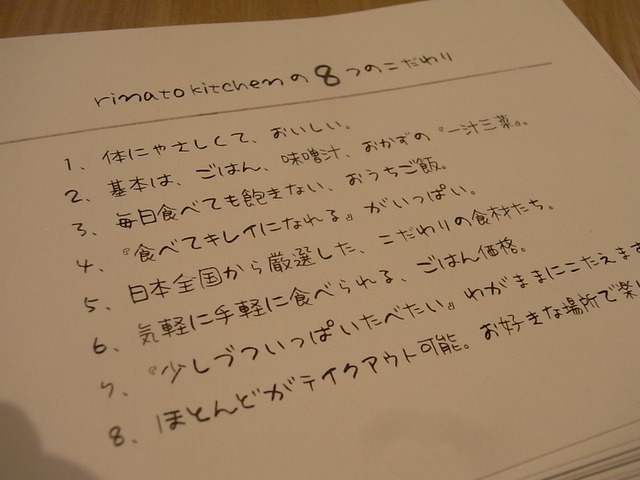 rimatokitchenの8つのこだわり
1、体にやさしくて、おいしい。
2、基本は、ごはん、味噌汁、おかずの『一汁三菜』。
3、毎日食べても飽きない、おうちご飯。
4、『食べてキレイになれる』がいっぱい。
5、日本全国から厳選した、こだわりの食材たち。
6、気軽に手軽に食べられる、ごはん価格。
7、『少しづついっぱいたべたい』わがままにこたえます
8、ほとんどがテイクアウト可能。お好きな場所で楽し